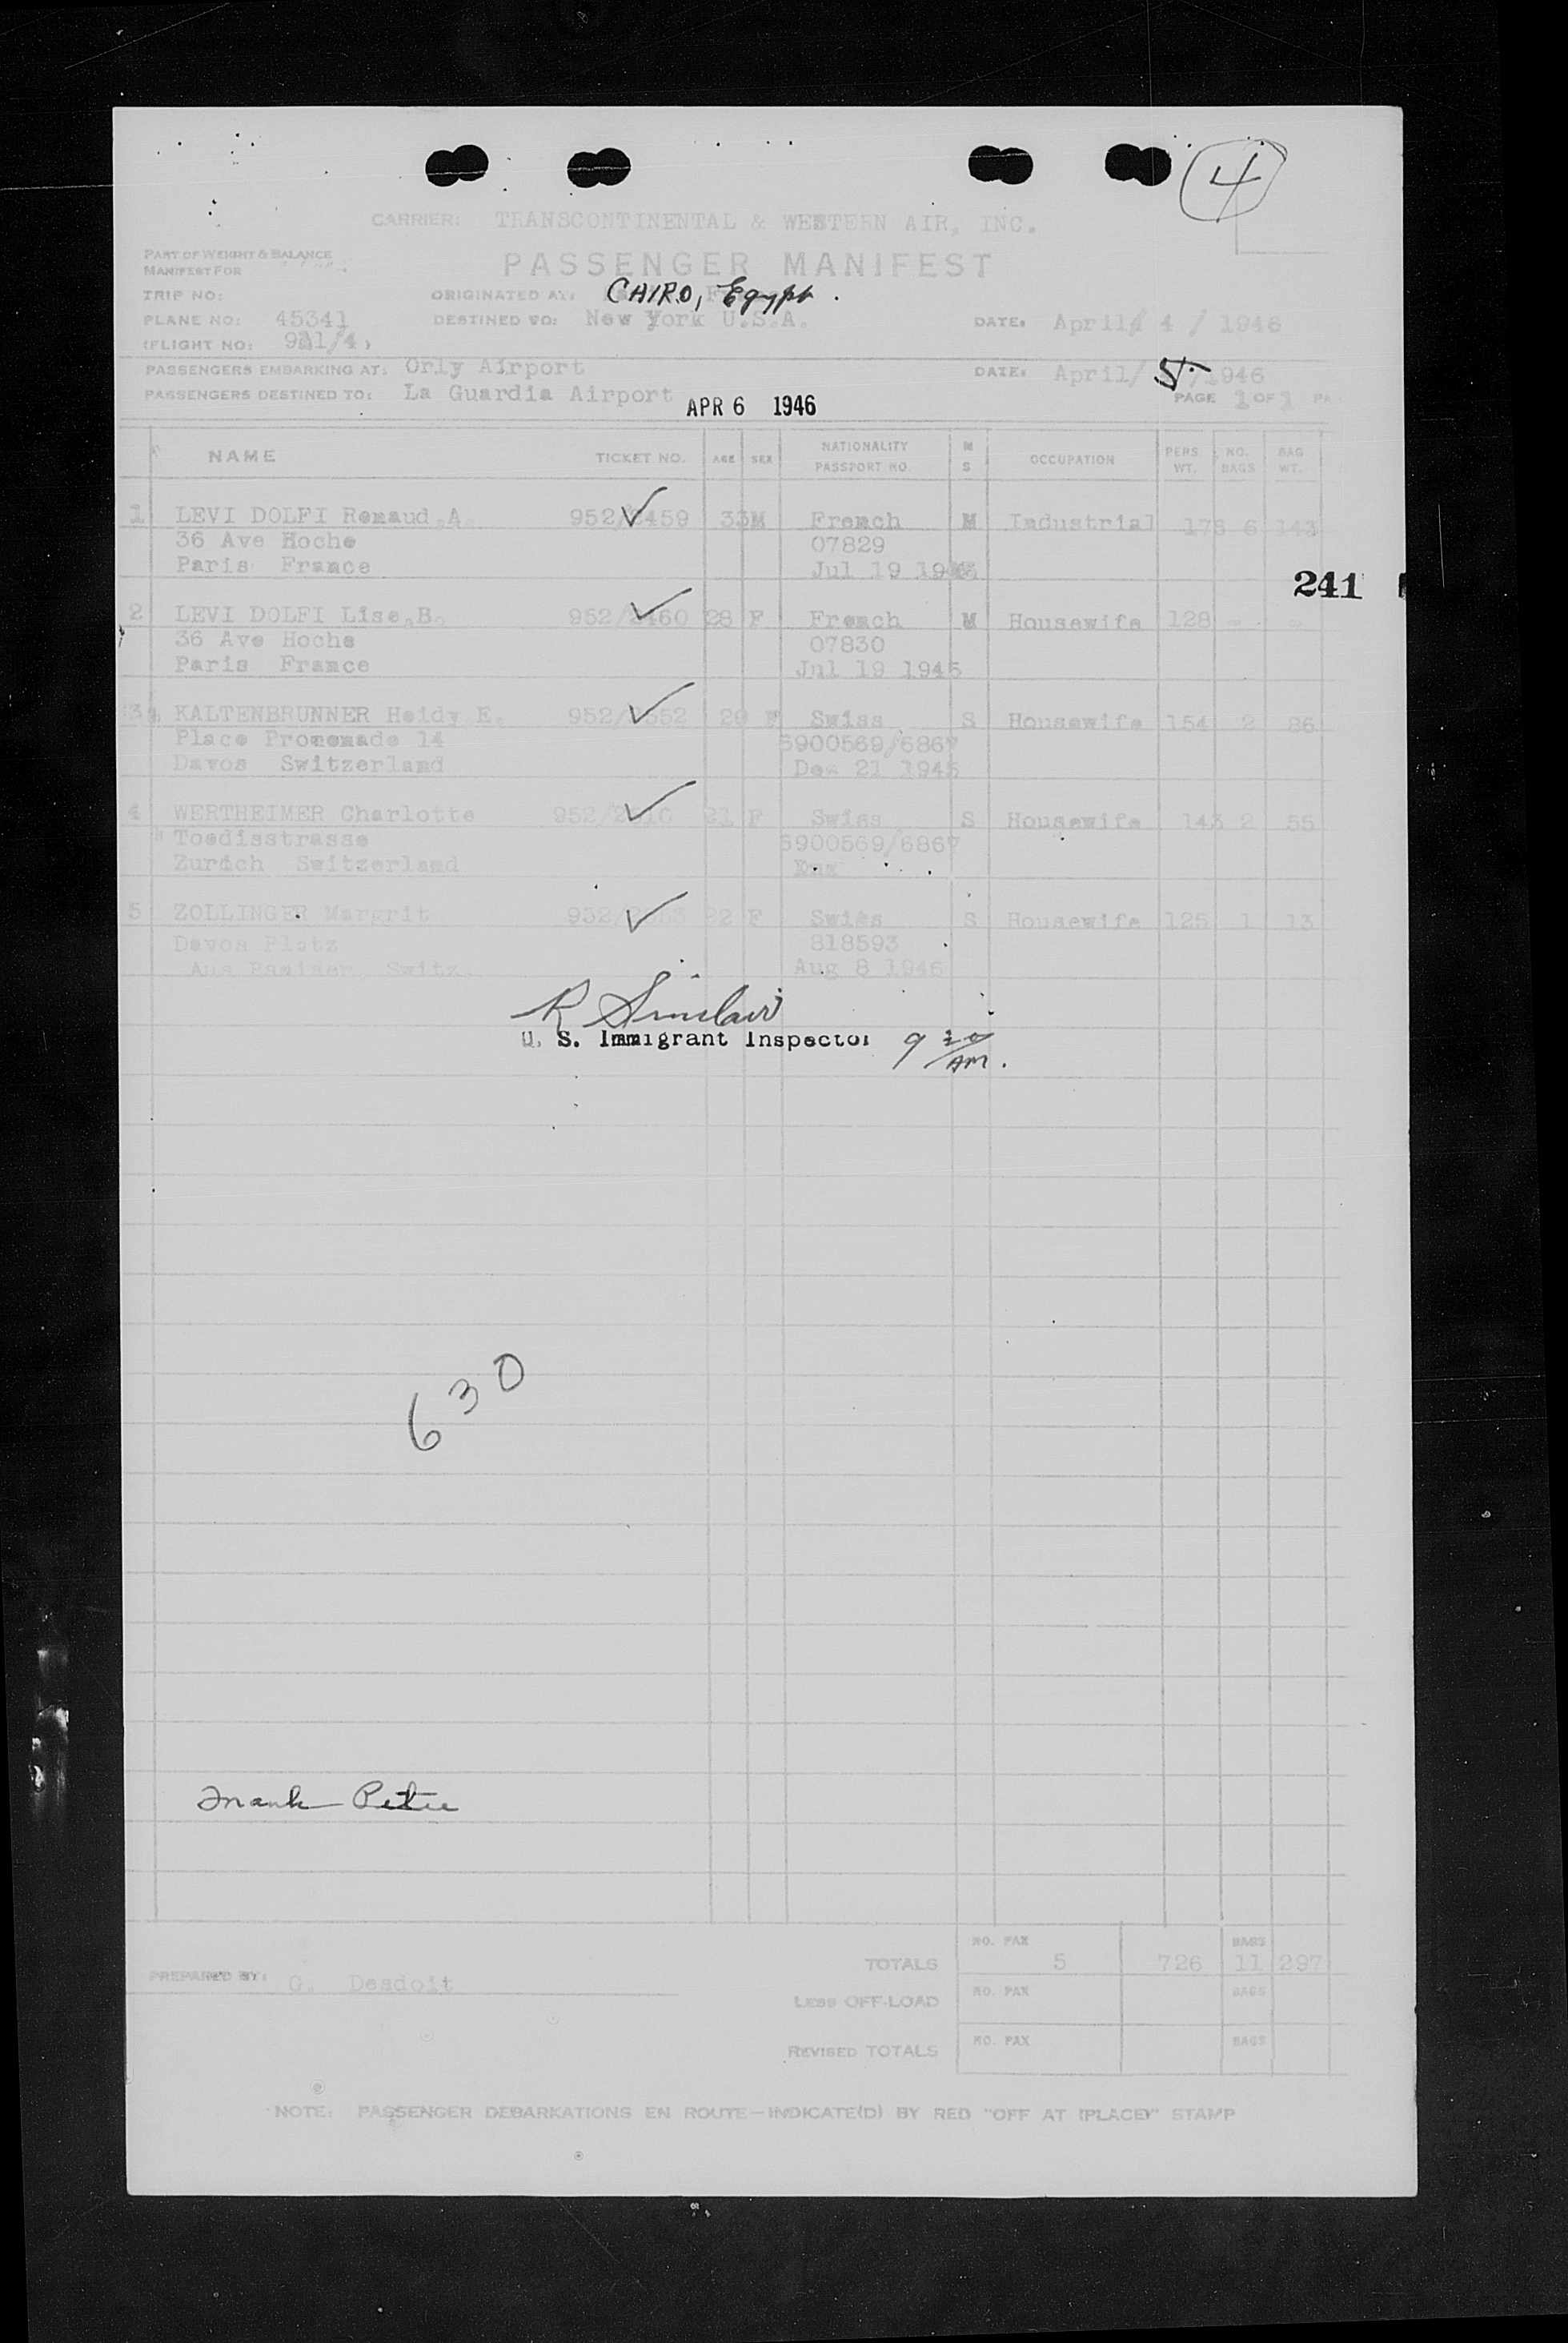 4
CARRIER: TRANSCONTINENTAL & WESTERN AIR, INC.
PART OF WEIGHT & BALANCE
MANIFEST FOR
PASSENGER MANIFEST
TRIP NO: ORIGINATED AT: CAIRO, Egypt.
PLANE NO: 45341 DESTINED TO: New York U.S.A. DATE: April/ 4 / 1946
(FLIGHT NO: 921/4)
PASSENGERS EMBARKING AT: Orly Airport DATE: April/ 5 /1946
PASSENGERS DESTINED TO: La Guardia Airport APR 6 1946 PAGE 1 OF 1
NAME TICKET NO. AGE SEX NATIONALITY PASSPORT NO. M S OCCUPATION PERS. WT. NO. BAGS BAG WT.
1 LEVI DOLFI Renaud.A. 952/2459 33 M French M Industrial 176 6 143
36 Ave Hoche 07829
Paris France Jul 19 1945
241
2 LEVI DOLFI Lise.B. 952/2460 28 F French M Housewife 128 - -
36 Ave Hoche 07830
Paris France Jul 19 1945
3 KALTENBRUNNER Heidy E. 952/ 29 F Swiss S Housewife 154 2 86
Place Promenade 14 5900569/6867
Davos Switzerland Dec 21 1945
4 WERTHEIMER Charlotte 952/ 21 F Swiss S Housewife 143 2 55
Toedisstrasse 5900569/6867
Zurich Switzerland
5 ZOLLINGER Margrit 952/ 22 F Swiss S Housewife 125 1 13
Davos Platz 818593
Switz. Aug 8 1946
R Sinclair
U. S. Immigrant Inspector 9 20 AM.
630
Frank Petrie
TOTALS NO. PAX 5 726 BAGS 11 297
PREPARED BY: G. Desdoit
LESS OFF-LOAD NO. PAX BAGS
REVISED TOTALS NO. PAX BAGS
NOTE: PASSENGER DEBARKATIONS EN ROUTE—INDICATE(D) BY RED "OFF AT (PLACE)" STAMP